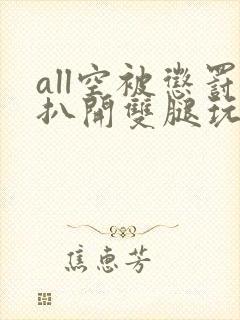 all空被懲罰
扒開雙腿玩
焦惠芳